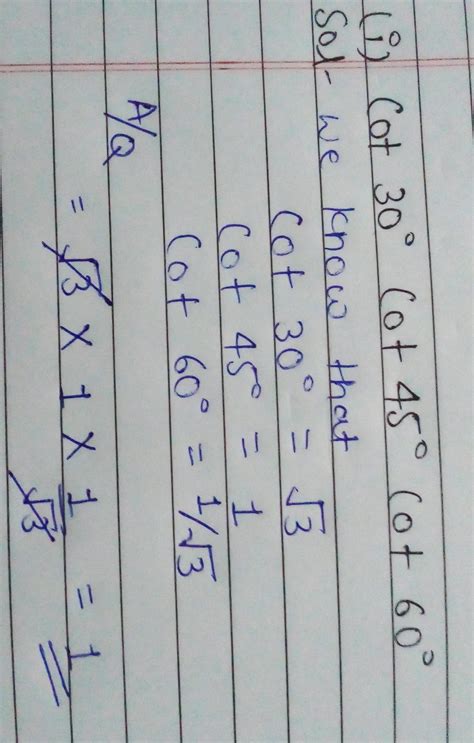 (i) Cot 30° Cot 45° Cot 60°
Sol- we know that
Cot 30° = √3
Cot 45° = 1
Cot 60° = 1/√3
A/Q
= √3 × 1 × 1/√3 = 1